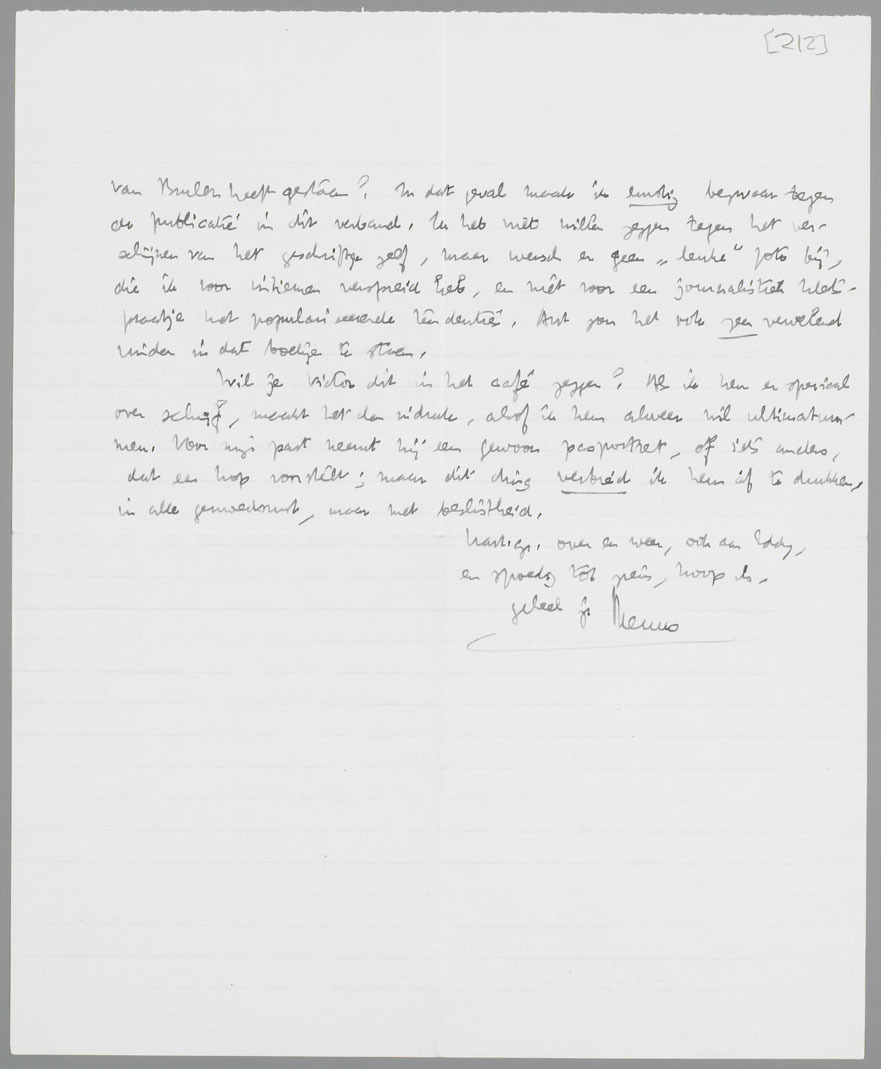 [212]
van Brulez heeft gestaan? In dat geval maak ik ernstig bezwaar tegen
de publicatie in dit verband. Ik heb niets willen zeggen tegen het ver-
schijnen van het geschriftje zelf, maar wensch er geen „leuke" foto bij,
die ik voor intiemen verspreid heb, en niet voor een journalistiek klets-
praatje met populariseerende tendentie. Ant zou het ook zeer vervelend
vinden in dat boekje te staan.
Wil je Victor dit in het café zeggen? Als ik hem er speciaal
over schrijf, maakt het den indruk, alsof ik hem alweer wil ultimatum-
men. Voor mijn part neemt hij een gewoon pasportret, of iets anders,
dat een kop voorstelt; maar dit ding verbied ik hem af te drukken,
in alle gemoedsrust, maar met beslistheid.
Hart. gr. over en weer, ook aan Eddy,
en spoedig tot ziens, hoop ik.
geheel je Menno